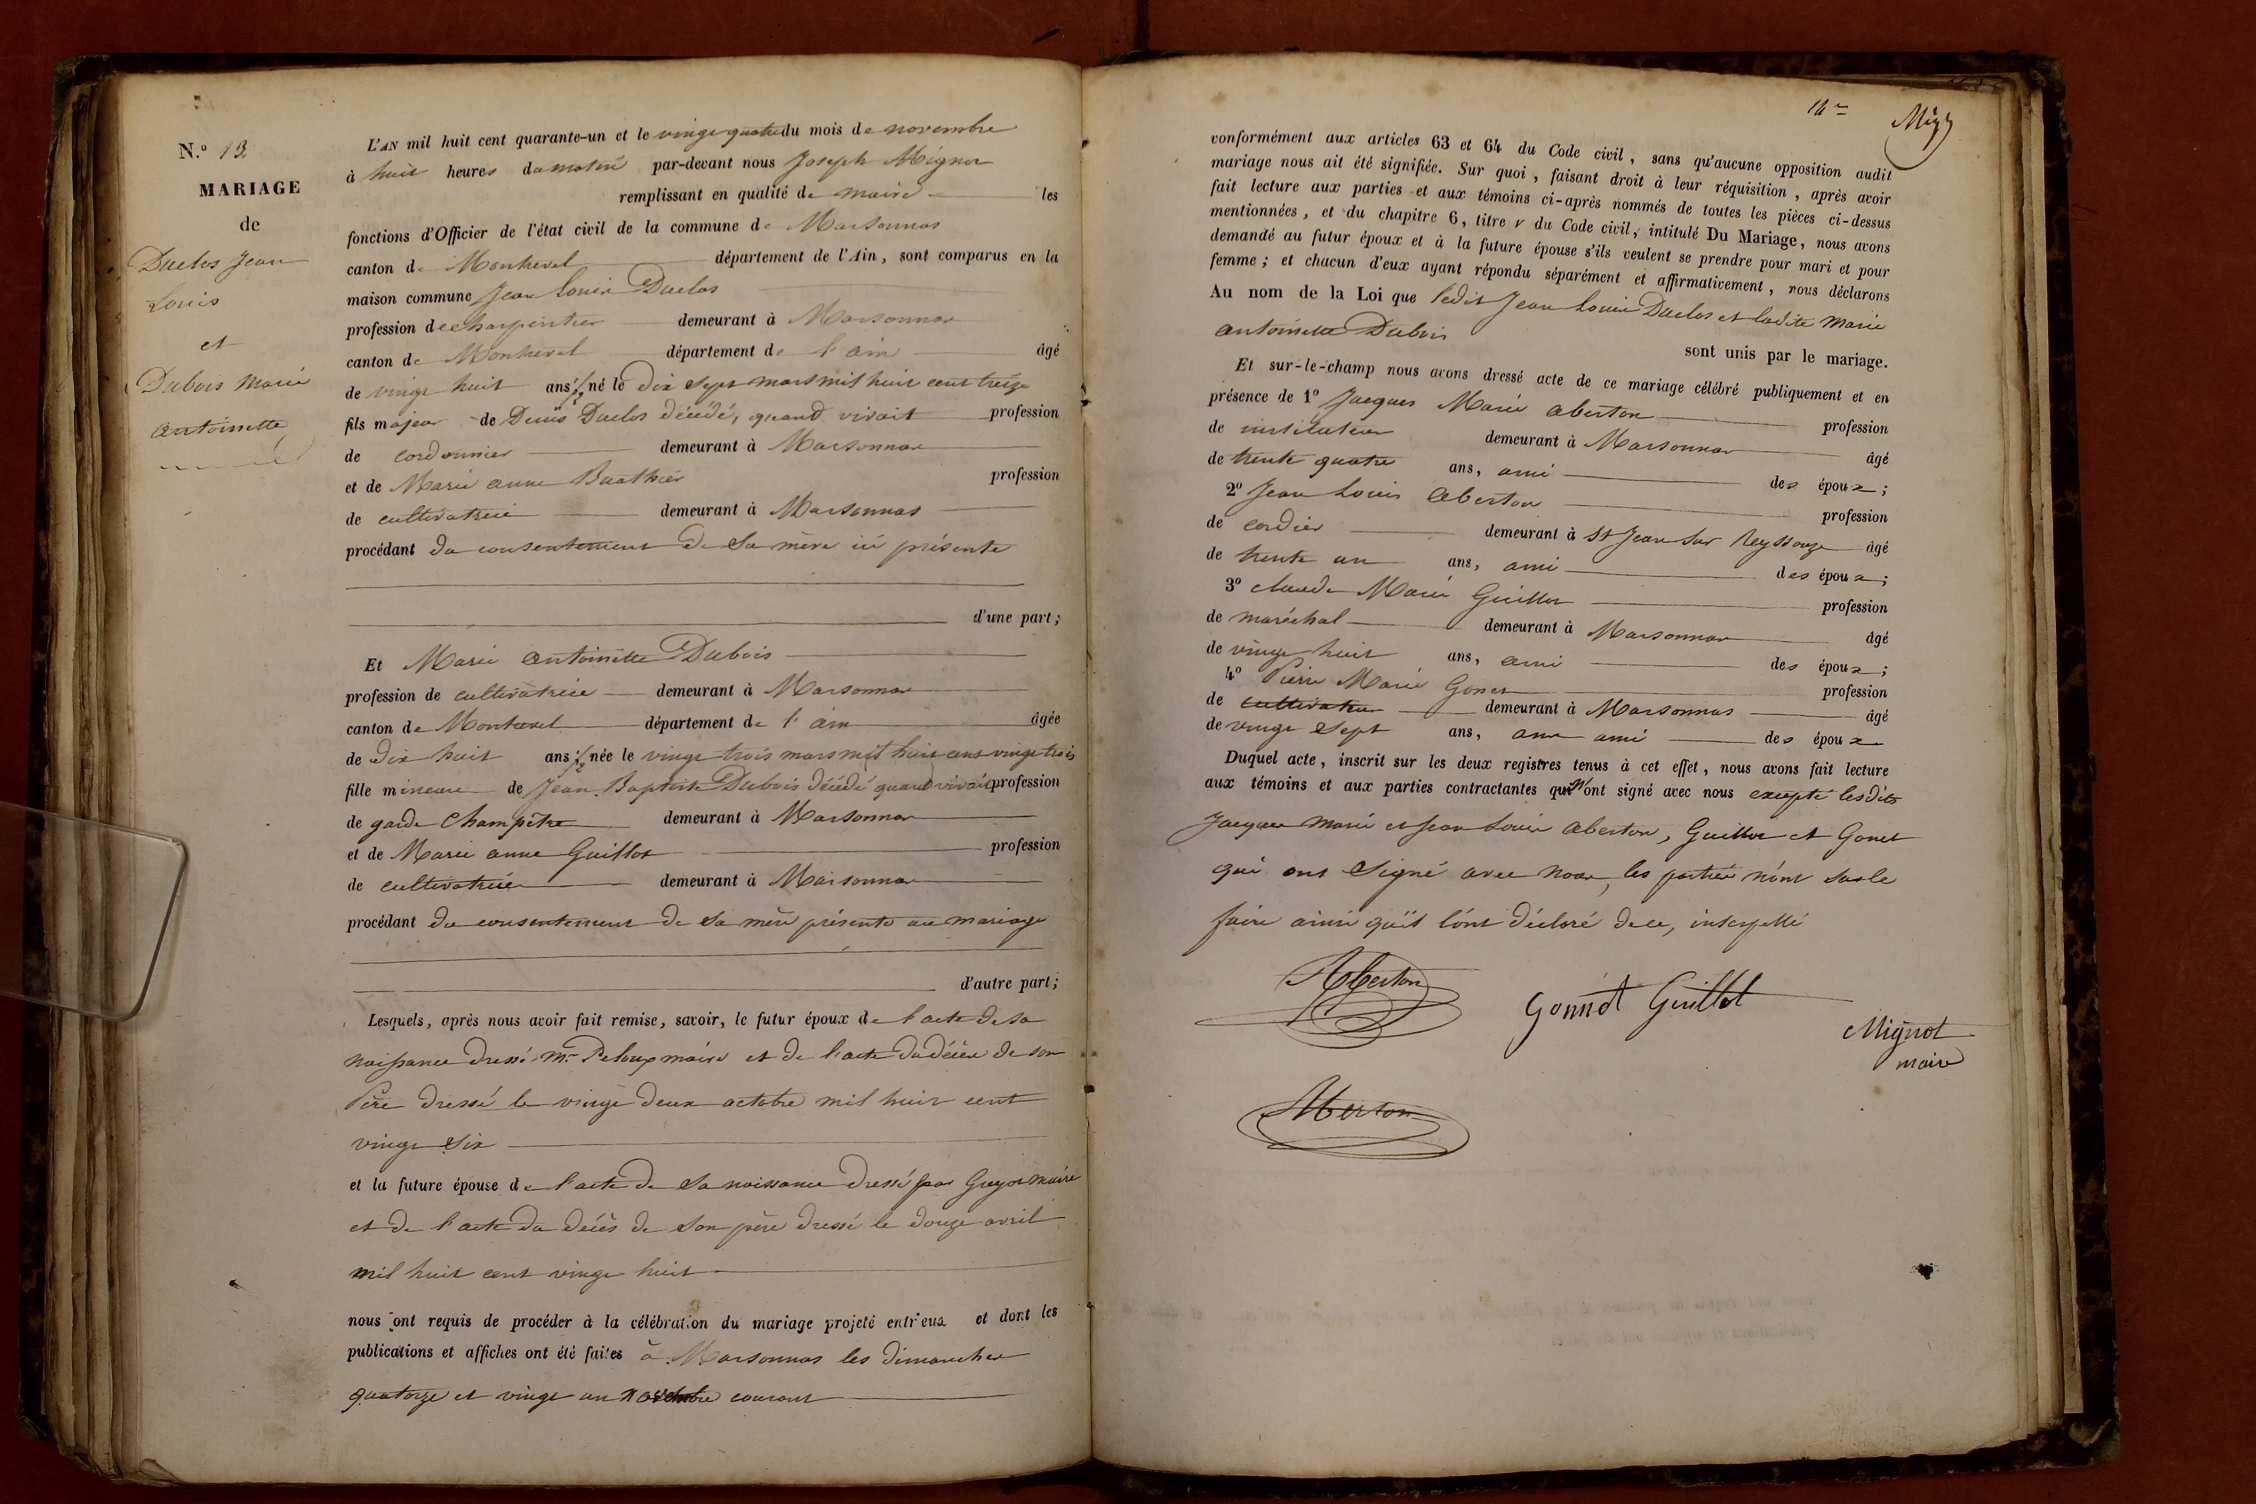 N.º 13
MARIAGE
de
Duclos Jean
Louis
et
Dubois Marie
antoinette
L'AN mil huit cent quarante-un et le vingt quatre du mois de novembre
à huit heures du matin par-devant nous Joseph Mignot
remplissant en qualité de maire les
fonctions d'Officier de l'état civil de la commune de Marsonnas
canton de Montrevel département de l'Ain, sont comparus en la
maison commune Jean Louis Duclos
profession de charpentier demeurant à Marsonnas
canton de Montrevel département de l'ain âgé
de vingt huit ans 1/2 né le dix sept mars mil huit cent treize
fils majeur de Denis Duclos décédé, quand vivait profession
de cordonnier demeurant à Marsonnas
et de Marie anne Buathier profession
de cultivatrice demeurant à Marsonnas
procédant du consentement de sa mère ici présente
d'une part;
Et Marie antoinette Dubois
profession de cultivatrice demeurant à Marsonnas
canton de Montrevel département de l'ain âgée
de dix huit ans 1/2 née le vingt trois mars mil huit cent vingt trois
fille mineure de Jean Baptiste Dubois décédé quand vivait profession
de garde champêtre demeurant à Marsonnas
et de Marie anne Guillot profession
de cultivatrice demeurant à Marsonnas
procédant du consentement de sa mère présente au mariage
d'autre part;
Lesquels, après nous avoir fait remise, savoir, le futur époux de l'acte de sa
naissance dressé Mr Peloux maire et de l'acte du décès de son
Père dressé le vingt deux octobre mil huit cent
vingt six
et la future épouse de l'acte de sa naissance dressé par Guyot maire
et de l'acte du décès de son père dressé le douze avril
mil huit cent vingt huit
nous ont requis de procéder à la célébration du mariage projeté entr'eux et dont les
publications et affiches ont été faites à Marsonnas les dimanches
quatorze et vingt un novembre courant
14e
conformément aux articles 63 et 64 du Code civil, sans qu'aucune opposition audit
mariage nous ait été signifiée. Sur quoi, faisant droit à leur réquisition, après avoir
fait lecture aux parties et aux témoins ci-après nommés de toutes les pièces ci-dessus
mentionnées, et du chapitre 6, titre v du Code civil, intitulé Du Mariage, nous avons
demandé au futur époux et à la future épouse s'ils veulent se prendre pour mari et pour
femme; et chacun d'eux ayant répondu séparément et affirmativement, nous déclarons
Au nom de la Loi que ledit Jean Louis Duclos et ladite Marie
antoinette Dubois
sont unis par le mariage.
Et sur-le-champ nous avons dressé acte de ce mariage célébré publiquement et en
présence de 1º Jacques Marie Aberton profession
de instituteur demeurant à Marsonnas âgé
de trente quatre ans, ami des époux;
2º Jean Louis Aberton profession
de cordier demeurant à St Jean sur Reyssouze âgé
de trente un ans, ami des époux;
3º claude Marie Guillot profession
de maréchal demeurant à Marsonnas âgé
de vingt huit ans, ami des époux;
4º Pierre Marie Gonet profession
de cultivateur demeurant à Marsonnas âgé
de vingt sept ans, ami des époux
Duquel acte, inscrit sur les deux registres tenus à cet effet, nous avons fait lecture
aux témoins et aux parties contractantes qui n'ont signé avec nous excepté lesdits
Jacques Marie et Jean Louis Aberton, Guillot et Gonet
qui ont signé avec nous, les parties n'ont su le
faire ainsi qu'ils l'ont déclaré de ce, interpellé
Aberton
Gonnet Guillot
Mignot
maire
Aberton